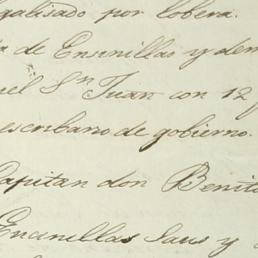 galisado por lobera.
de Ensinillas y dem
el Sn Juan con 12
escribano de gobierno.
Capitan don Benit
Encinillas Saus y